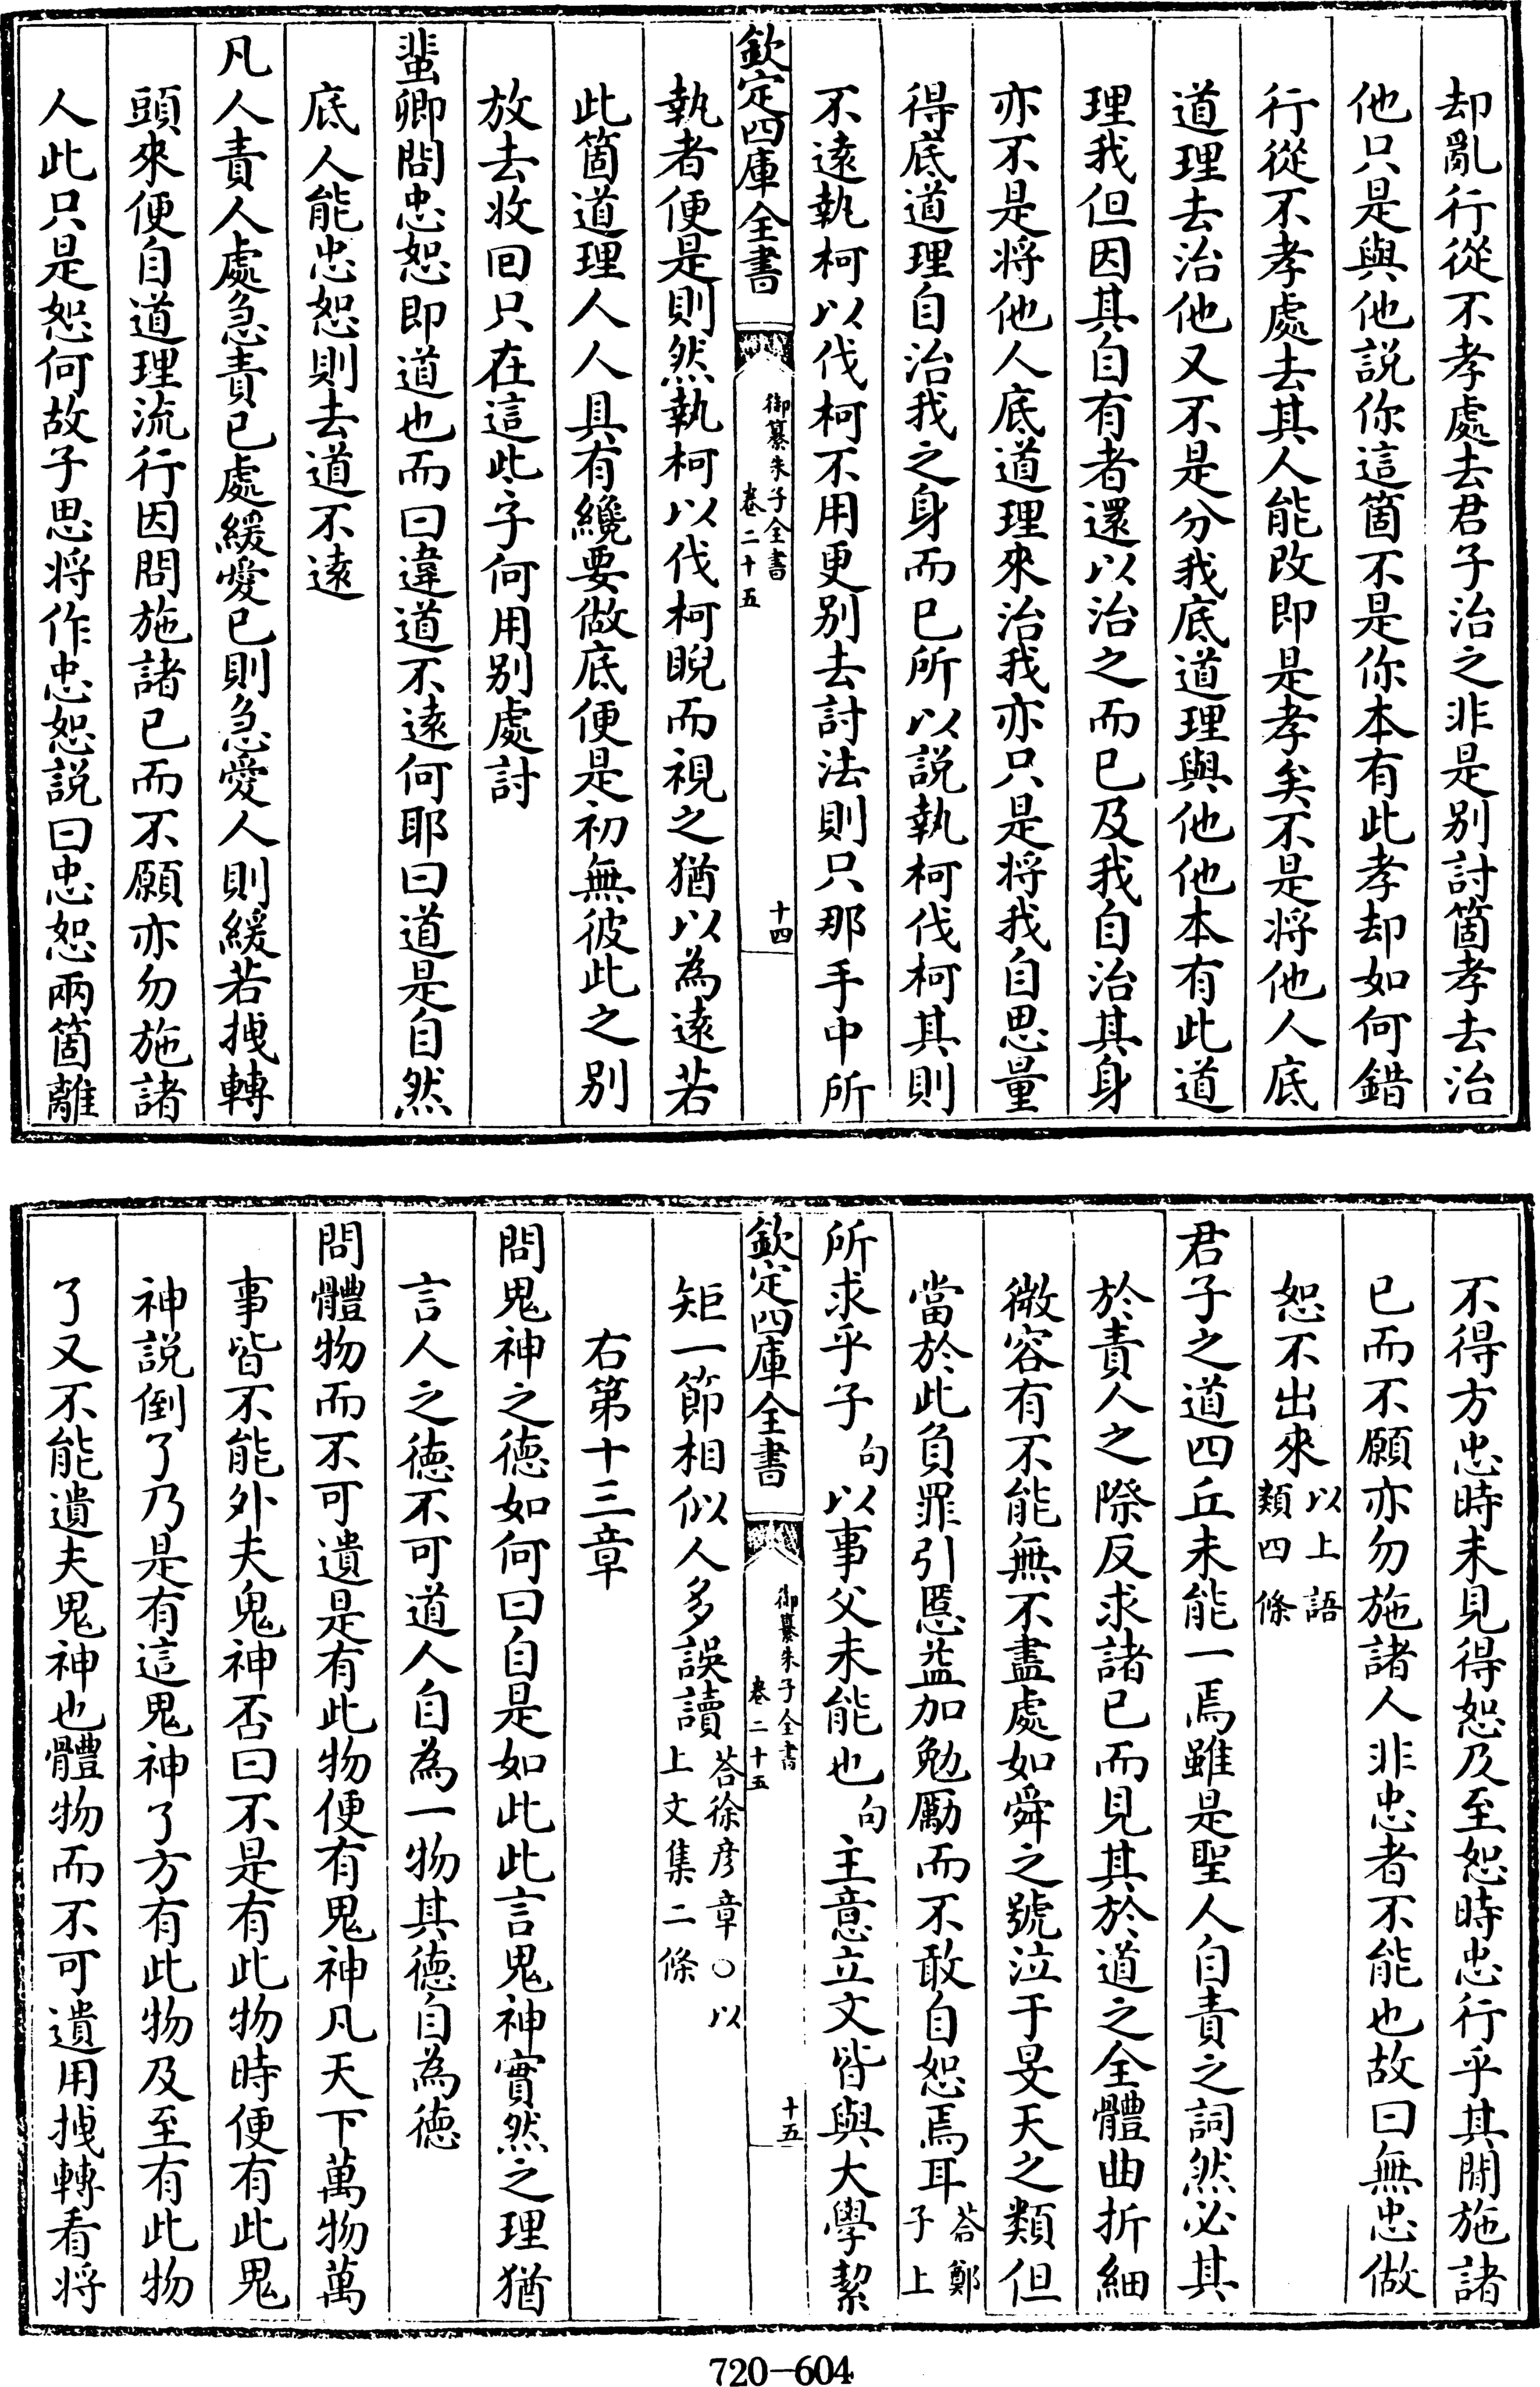 却亂行從不孝處去君子治之非是别討箇孝去治
他只是與他説你這箇不是你本有此孝却如何錯
行從不孝處去其人能改即是孝矣不是將他人底
道理去治他又不是分我底道理與他他本有此道
理我但因其自有者還以治之而已及我自治其身
亦不是將他人底道理來治我亦只是將我自思量
得底道理自治我之身而已所以説執柯伐柯其則
不逺執柯以伐柯不用更别去討法則只那手中所
欽定四庫全書
御纂朱子全書
卷二十五
十四
執者便是則然執柯以伐柯睨而視之猶以為逺若
此箇道理人人具有纔要做底便是初無彼此之别
放去收回只在這些子何用别處討
蜚卿問忠恕即道也而曰違道不逺何耶曰道是自然
底人能忠恕則去道不逺
凡人責人處急責已處緩愛已則急愛人則緩若拽轉
頭來便自道理流行因問施諸已而不願亦勿施諸
人此只是恕何故子思將作忠恕説曰忠恕兩箇離
不得方忠時未見得恕及至恕時忠行乎其間施諸
已而不願亦勿施諸人非忠者不能也故曰無忠做
恕不出來以上語類四條
君子之道四丘未能一焉雖是聖人自責之詞然必其
於責人之際反求諸已而見其於道之全體曲折細
微容有不能無不盡處如舜之號泣于旻天之類但
當於此負罪引慝益加勉勵而不敢自恕焉耳荅鄭子上
所求乎子句以事父未能也句主意立文皆與大學絜
欽定四庫全書
御纂朱子全書
卷二十五
十五
矩一節相似人多誤讀荅徐彦章○以上文集二條
右第十三章
問鬼神之德如何曰自是如此此言鬼神實然之理猶
言人之德不可道人自為一物其德自為德
問體物而不可遺是有此物便有鬼神凡天下萬物萬
事皆不能外夫鬼神否曰不是有此物時便有此鬼
神説倒了乃是有這鬼神了方有此物及至有此物
了又不能遺夫鬼神也體物而不可遺用拽轉看將
720-604